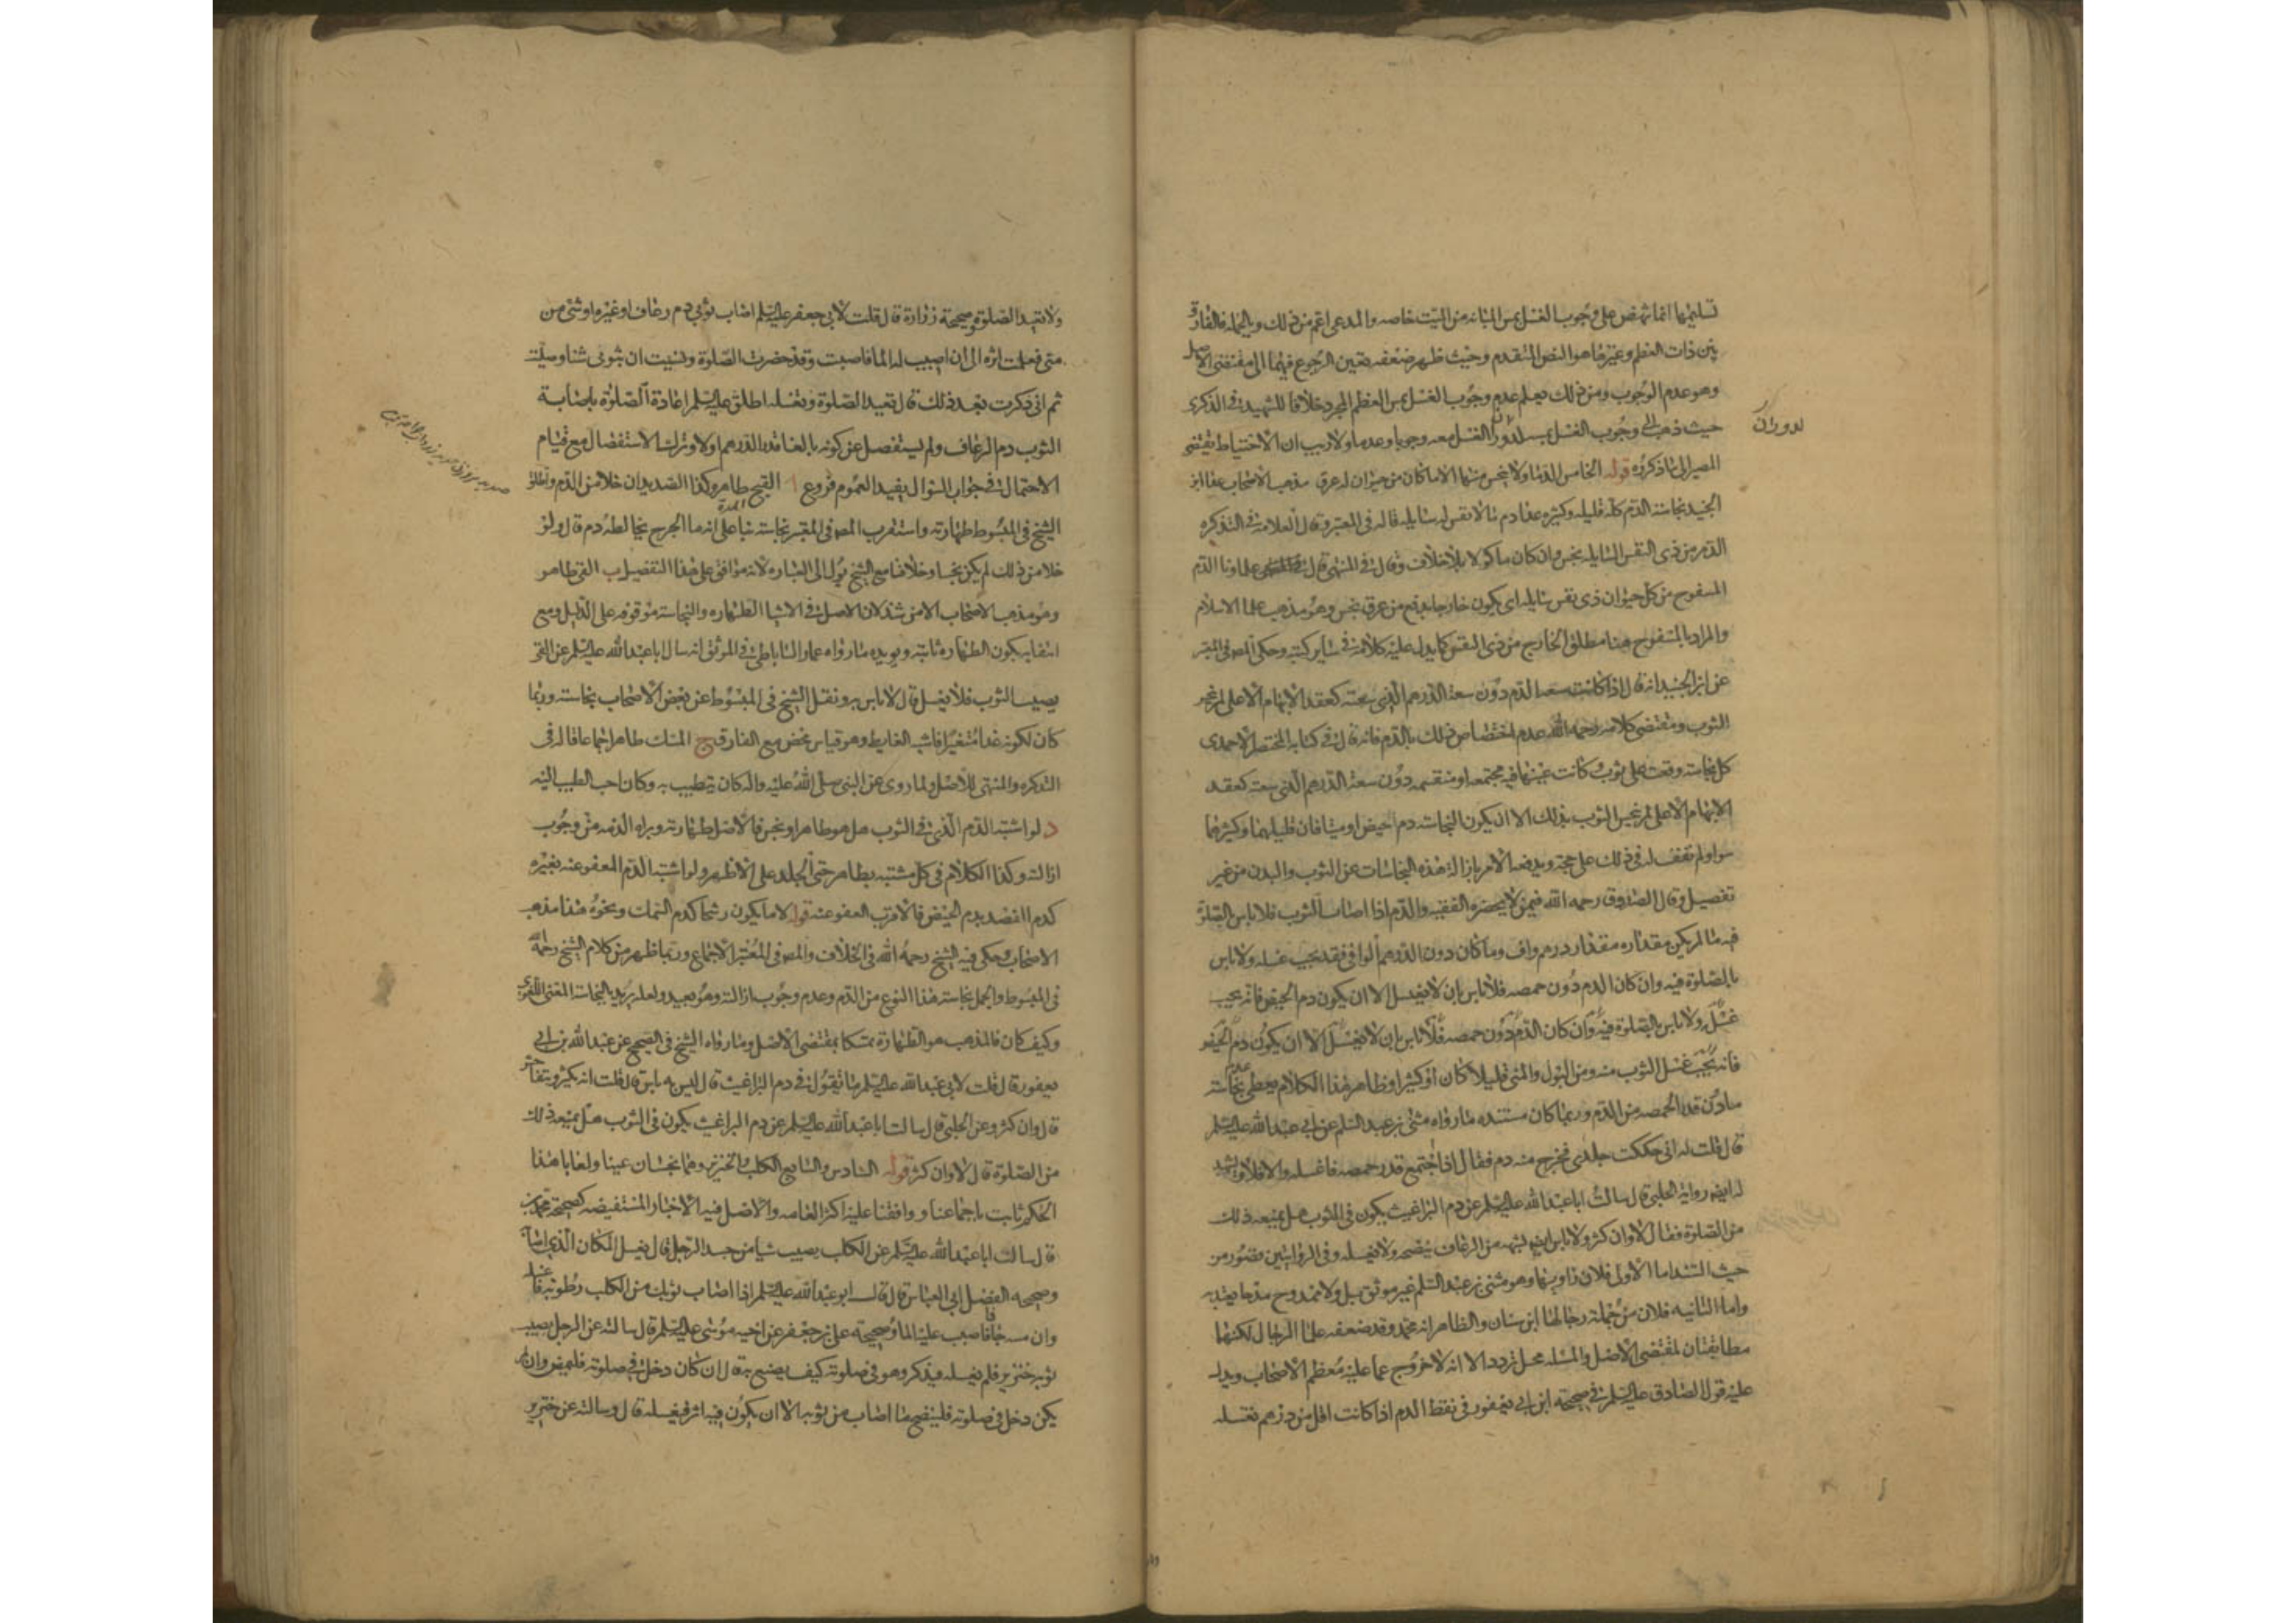 تسليمها انما تنهض على وجوب الغسل بمس المبانه من الميت خاصه والمدعى اعم من ذلك وبالجمله فالفارق
بين ذات العظم وغيرها هو النص المتقدم وحيث ظهر ضعفه تعين الرجوع فيهما الى مقتضى الاصل
وهو عدم الوجوب ومن ذلك يعلم عدم وجوب الغسل بمس العظم المجرد خلافا للشهيد في الذكرى
لدوران
حيث ذهب الى وجوب الغسل بمسه لدوران الغسل معه وجودا وعدما ولا ريب ان الاحتياط يقتضى
المصير الى ما ذكروه قوله الخامس الدما ولا ينجس منها الا ما كان من حيوان له عرق مذهب الاصحاب عدا ابن
الجنيد نجاسة الدم كله قليله وكثيره عدا دم ما لا نفس له سايله قاله في المعتبر وقال العلامة في التذكره
الدم من ذى النفس السايله نجس وان كان ماكولا بلا خلاف وقال في المنتهى قال علماونا الدم
المسفوح من كل حيوان ذى نفس سايله اى يكون خارجا بدفع من عرق نجس وهو مذهب علما الاسلام
والمراد بالمسفوح هنا مطلق الخارج من ذى النفس كما يدل عليه كلامه في ساير كتبه وحكى المص في المعتبر
عن ابن الجنيد انه قال اذا كانت سعة الدم دون سعة الدرهم الذى سعته كعقد الابهام الاعلى لم ينجس
الثوب ومقتضى كلامه رحمه الله عدم اختصاص ذلك بالدم فانه قال في كتابه المختصر الاحمدى
كل نجاسة وقعت على ثوب وكانت عينها فيه مجتمعه او منقسمه دون سعة الدرهم الذى سعته كعقد
الابهام الاعلى لم ينجس الثوب بذلك الا ان يكون النجاسة دم حيض او منيا فان قليلهما وكثيرهما
سواء ولم نقف له في ذلك على حجة ويدفعه الامر بازالة هذه النجاسات عن الثوب والبدن من غير
تفصيل وقال الصدوق رحمه الله فيمن لا يحضره الفقيه والدم اذا اصاب الثوب فلا باس بالصلوة
فيه ما لم يكن مقداره مقدار درهم واف وما كان دون الدرهم الوافى فقد يجب غسله ولا باس
بالصلوة فيه وان كان الدم دون حمصه فلا باس بان لا يغسل الا ان يكون دم الحيض فانه يجب
غسله ولا باس بالصلوة فيه وان كان الدم دون حمصه فلا باس بان لا يغسل الا ان يكون دم الحيض
فانه يجب غسل الثوب منه ومن البول والمنى قليلا كان او كثيرا وظاهر هذا الكلام يعطى عدم نجاسة
ما دون قدر الحمصه من الدم وربما كان مستنده ما رواه مثنى بن عبد السلم عن ابى عبد الله عليه السلم
قال قلت له انى حككت جلدى فخرج منه دم فقال اذا اجتمع قدر حمصه فاغسله والا فلا ويشهد
له ايضا رواية الحلبى قال سالت ابا عبد الله عليه السلم عن دم البراغيث يكون في الثوب هل يمنعه ذلك
من الصلوة فقال لا وان كثر ولا باس ايضا بشبهه من الرعاف ينضحه ولا يغسله وفي الروايتين قصور من
حيث السند اما الاولى فلان راويها وهو مثنى بن عبد السلم غير موثق بل ولا ممدوح مدحا يعتد به
واما الثانيه فلان من جملة رجالها ابن سنان والظاهر انه محمد وقد ضعفه علما الرجال لكنهما
مطابقتان لمقتضى الاصل والمسله محل تردد الا انه لا خروج عما عليه معظم الاصحاب ويدل
عليه قول الصادق عليه السلم في صحيحة ابن ابى يعفور في نقط الدم اذا كانت اقل من درهم تغسله
ولا تعيد الصلوة وصحيحة زرارة قال قلت لابى جعفر عليه السلم اصاب ثوبي دم رعاف او غيره او شئ من
منى فعلمت اثره الى ان اصيب له الما فاصبت وقد حضرت الصلوة ونسيت ان بثوبى شئا وصليت
ثم انى ذكرت بعد ذلك قال تعيد الصلوة وتغسله اطلق عليه السلم اعادة الصلوة باصابة
الثوب دم الرعاف ولم يستفصل عن كونه بالغا قدر الدرهم اولا وترك الاستفصال مع قيام
الاحتمال في جواب السوال يفيد العموم فروع ا القيح طاهر وكذا الصديد ان خلا من الدم واطلق
الشيخ في المبسوط طهارته واستقرب المص في المعتبر نجاسته بنا على انه ما الجرح يخالطه دم قال ولو
خلا من ذلك لم يكن نجسا وخلافنا مع الشيخ يول الى العباره لانه موافق على هذا التفصيل ب القى طاهر
وهو مذهب الاصحاب الا من شذ لان الاصل في الاشيا الطهاره والنجاسة موقوفه على الدليل ومع
انتفايه يكون الطهاره ثابتة ويويده ما رواه عمار الساباطى في الموثق انه سال ابا عبد الله عليه السلم عن القى
يصيب الثوب فلا يغسل قال لا باس به ونقل الشيخ في المبسوط عن بعض الاصحاب نجاسته وربما
كان لكونه غدا متغيرا فاشبه الغايط وهو قياس محض مع الفارق ج المسك طاهر اجماعا قاله في
التذكره والمنتهى للاصل ولما روى عن النبى صلى الله عليه واله كان يتطيب به وكان احب الطيب اليه
د لو اشتبه الدم الذي في الثوب هل هو طاهر او نجس فالاصل طهارته وبراة الذمه من وجوب
ازالته وكذا الكلام في كل مشتبه بطاهر حتى الجلد على الاظهر ولو اشتبه الدم المعفو عنه بغيره
كدم الفصد بدم الحيض فالاقرب العفو عنه قوله لا ما يكون رشحا كدم السمك ونحوه هذا مذهب
الاصحاب وحكى فيه الشيخ رحمه الله في الخلاف والمص في المعتبر الاجماع وربما ظهر من كلام الشيخ رحمه الله
في المبسوط والجمل نجاسة هذا النوع من الدم وعدم وجوب ازالته وهو بعيد ولعله يريد بالنجاسة المعنى اللغوى
وكيف كان فالمذهب هو الطهارة تمسكا بمقتضى الاصل وما رواه الشيخ في الصحيح عن عبد الله بن ابى
يعفور قال قلت لابى عبد الله عليه السلم ما تقول في دم البراغيث قال ليس به باس قال قلت انه يكثر ويتفاحش
قال وان كثر وعن الحلبى قال سالت ابا عبد الله عليه السلم عن دم البراغيث يكون في الثوب هل يمنعه ذلك
من الصلوة قال لا وان كثر قوله السادس والسابع الكلب والخنزير وهما نجسان عينا ولعابا هذا
الحكم ثابت باجماعنا ووافقنا عليه اكثر العامه والاصل فيه الاخبار المستفيضه كصحيحة محمد بن
قال سالت ابا عبد الله عليه السلم عن الكلب يصيب شيا من جسد الرجل قال يغسل المكان الذى اصابه
وصحيحه الفضل ابى العباس قال قال ابو عبد الله عليه السلم اذا اصاب ثوبك من الكلب رطوبة فاغسله
وان مسه جافا فاصبب عليه الما وصحيحة على بن جعفر عن اخيه موسى عليه السلم قال سالته عن الرجل يصيب
ثوبه خنزير فلم يغسله فيذكر وهو في صلوته كيف يصنع به قال ان كان دخل في صلوته فليمض وان لم
يكن دخل في صلوته فلينضح ما اصاب من ثوبه الا ان يكون فيه اثر فيغسله قال وسالته عن خنزير